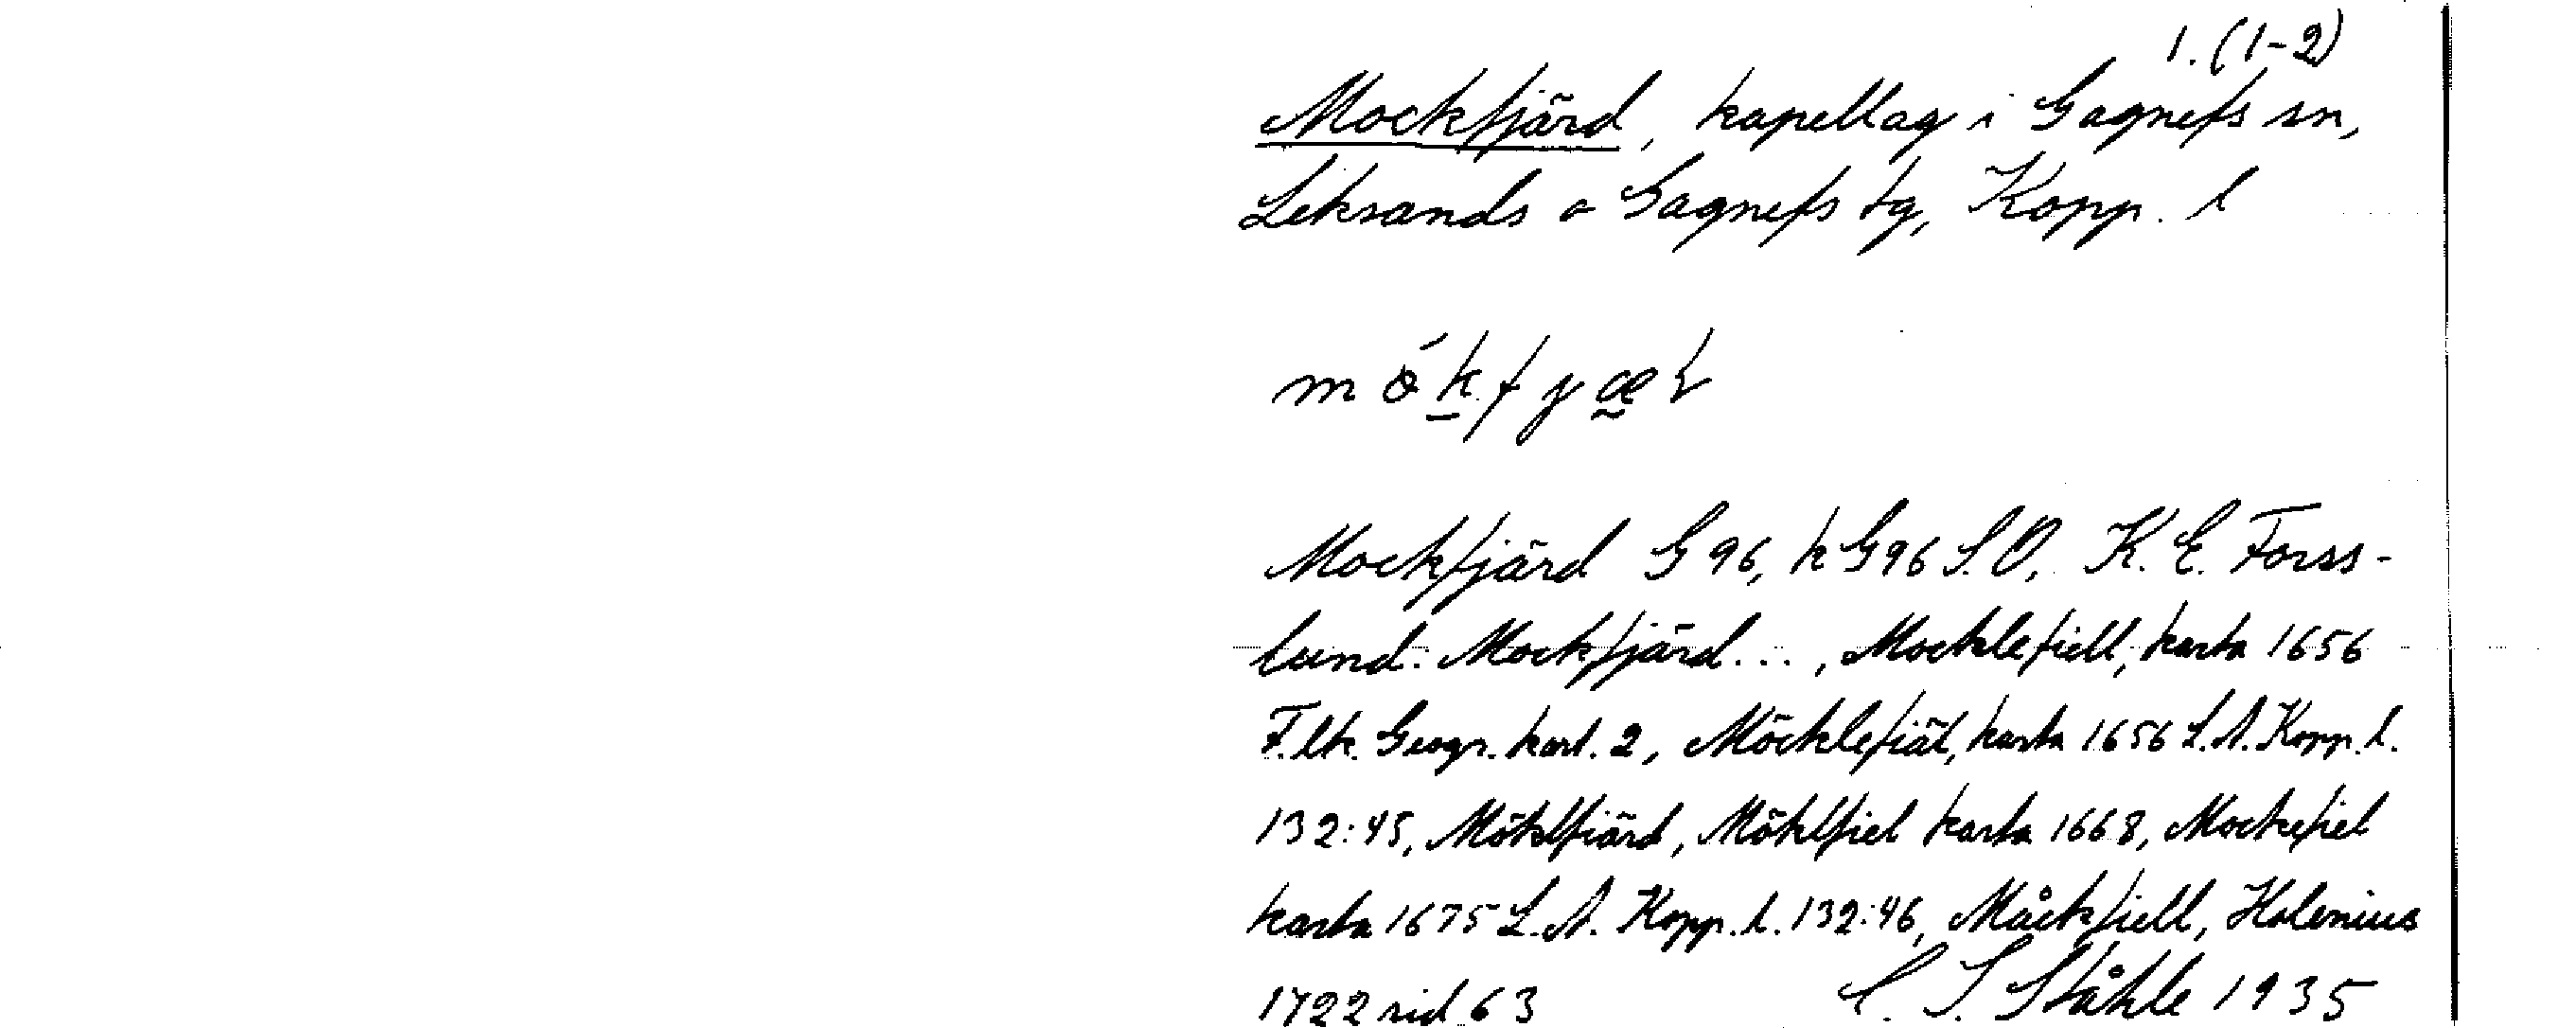 1. (1-2)
Mockfjärd, kapellag i Gagnefs sn,
Leksands o Gagnefs tg, Kopp. l
Mockfjärd G 96, k G96 S.O, K. E. Forss-
lund. Mockfjärd..., Mocklefiell, karta 1656
F.lk. Geogr. kart. 2, Möcklefiäl, karta 1656 L.A. Kopp. l.
132:45, Möklfiärd, Möklfiel karta 1668, Mockefiel
karta 1675 L.A. Kopp. l. 132:46, Måckfiell, Holenius
1722 sid 63 C. I. Ståhle 1935